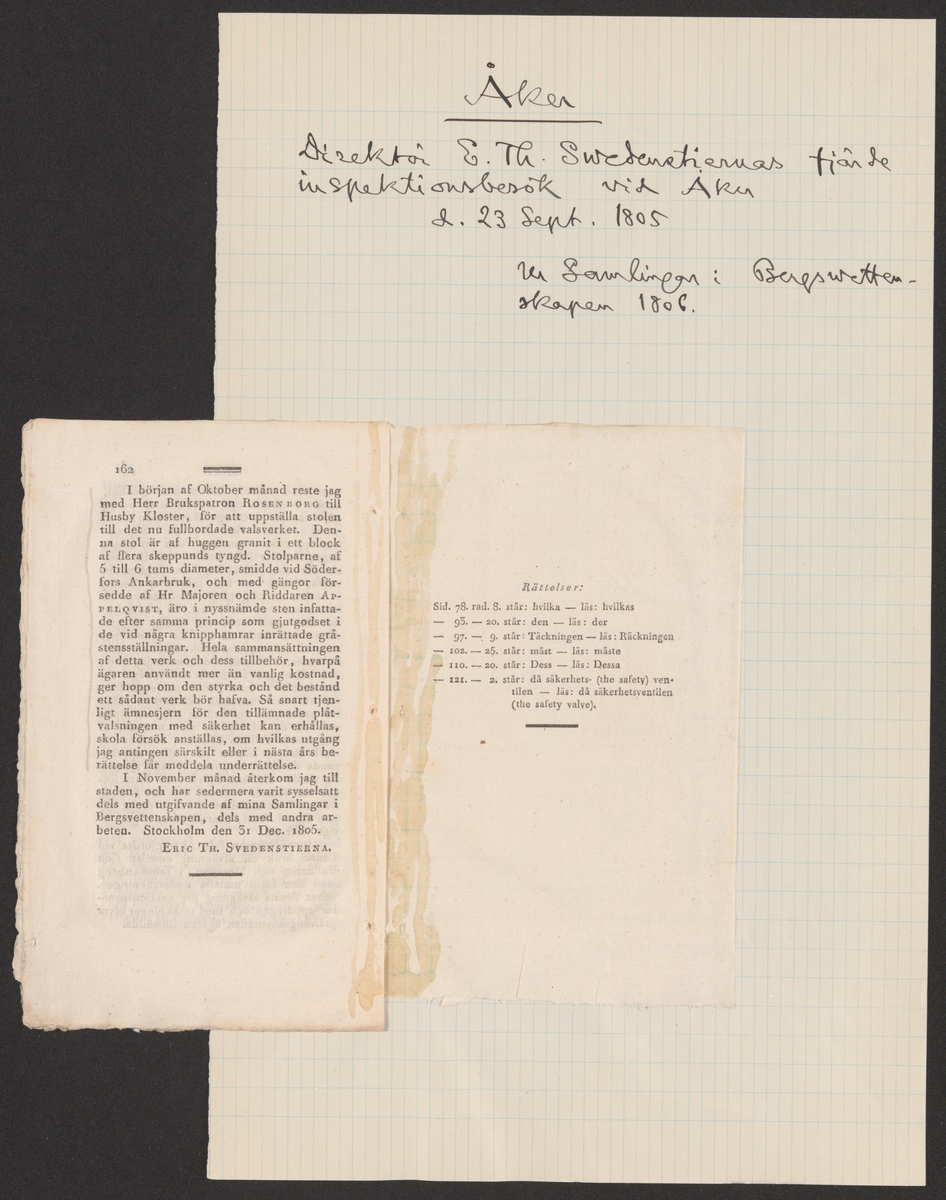 Åker
Direktör E. Th. Swedenstiernas fjärde
inspektionsbesök vid Åker
d. 23 Sept. 1805
ur Samlingar i Bergswetten-
skapen 1806.
162
I början af Oktober månad reste jag
med Herr Brukspatron ROSENBORG till
Husby Kloster, för att uppställa stolen
till det nu fullbordade valsverket. Den-
na stol är af huggen granit i ett block
af flera skeppunds tyngd. Stolparne, af
5 till 6 tums diameter, smidde vid Söder-
fors Ankarbruk, och med gängor för-
sedde af Hr Majoren och Riddaren AP-
PELQVIST, äro i nyssnämde sten infatta-
de efter samma princip som gjutgodset i
de vid några knipphamrar inrättade grå-
stensställningar. Hela sammansättningen
af detta verk och dess tillbehör, hvarpå
ägaren användt mer än vanlig kostnad,
ger hopp om den styrka och det bestånd
ett sådant verk bör hafva. Så snart tjen-
ligt ämnesjern för den tillämnade plåt-
valsningen med säkerhet kan erhållas,
skola försök anställas, om hvilkas utgång
jag antingen särskilt eller i nästa års be-
rättelse får meddela underrättelse.
I November månad återkom jag till
staden, och har sedermera varit sysselsatt
dels med utgifvande af mina Samlingar i
Bergsvettenskapen, dels med andra ar-
beten. Stockholm den 31 Dec. 1805.
ERIC TH. SVEDENSTIERNA.
Rättelser:
Sid. 78. rad. 8. står: hvilka — läs: hvilkas
— 93. — 20. står: den — läs: der
— 97. — 9. står: Täckningen — läs: Räckningen
— 102. — 25. står: måst — läs: måste
— 110. — 20. står: Dess — läs: Dessa
— 121. — 2. står: då säkerhets- (the safety) ven-
tilen — läs: då säkerhetsventilen
(the safety valve).